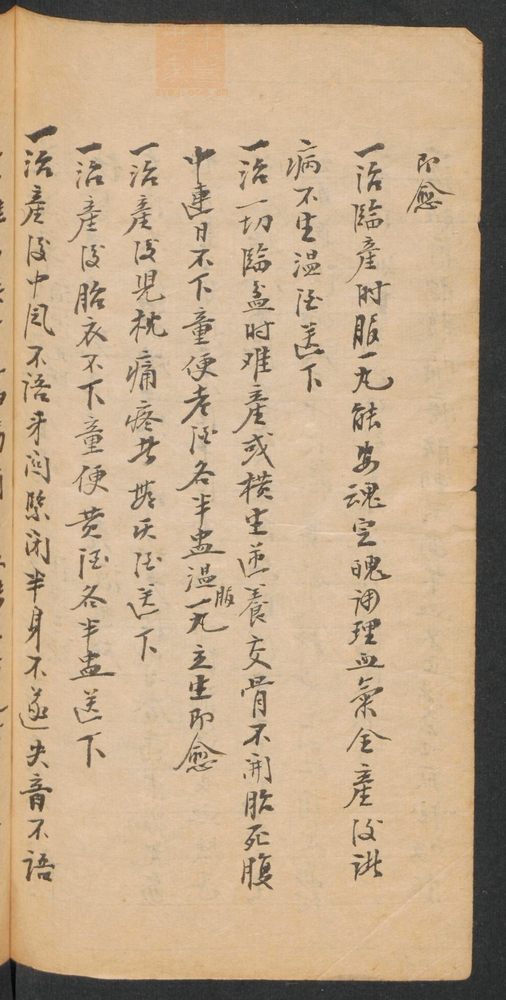 即愈
一治臨產时服一丸能安魂定魄调理血氣全產後諸
病不生温酒送下
一治一切臨盆时难產或横生逆養交骨不開胎死腹
中連日不下童便老酒各半盅温服一丸立生即愈
一治產後児枕痛疼共酒送下
一治產後胎衣不下童便黄酒各半盅送下
一治產後中风不語牙関緊闭半身不遂失音不語